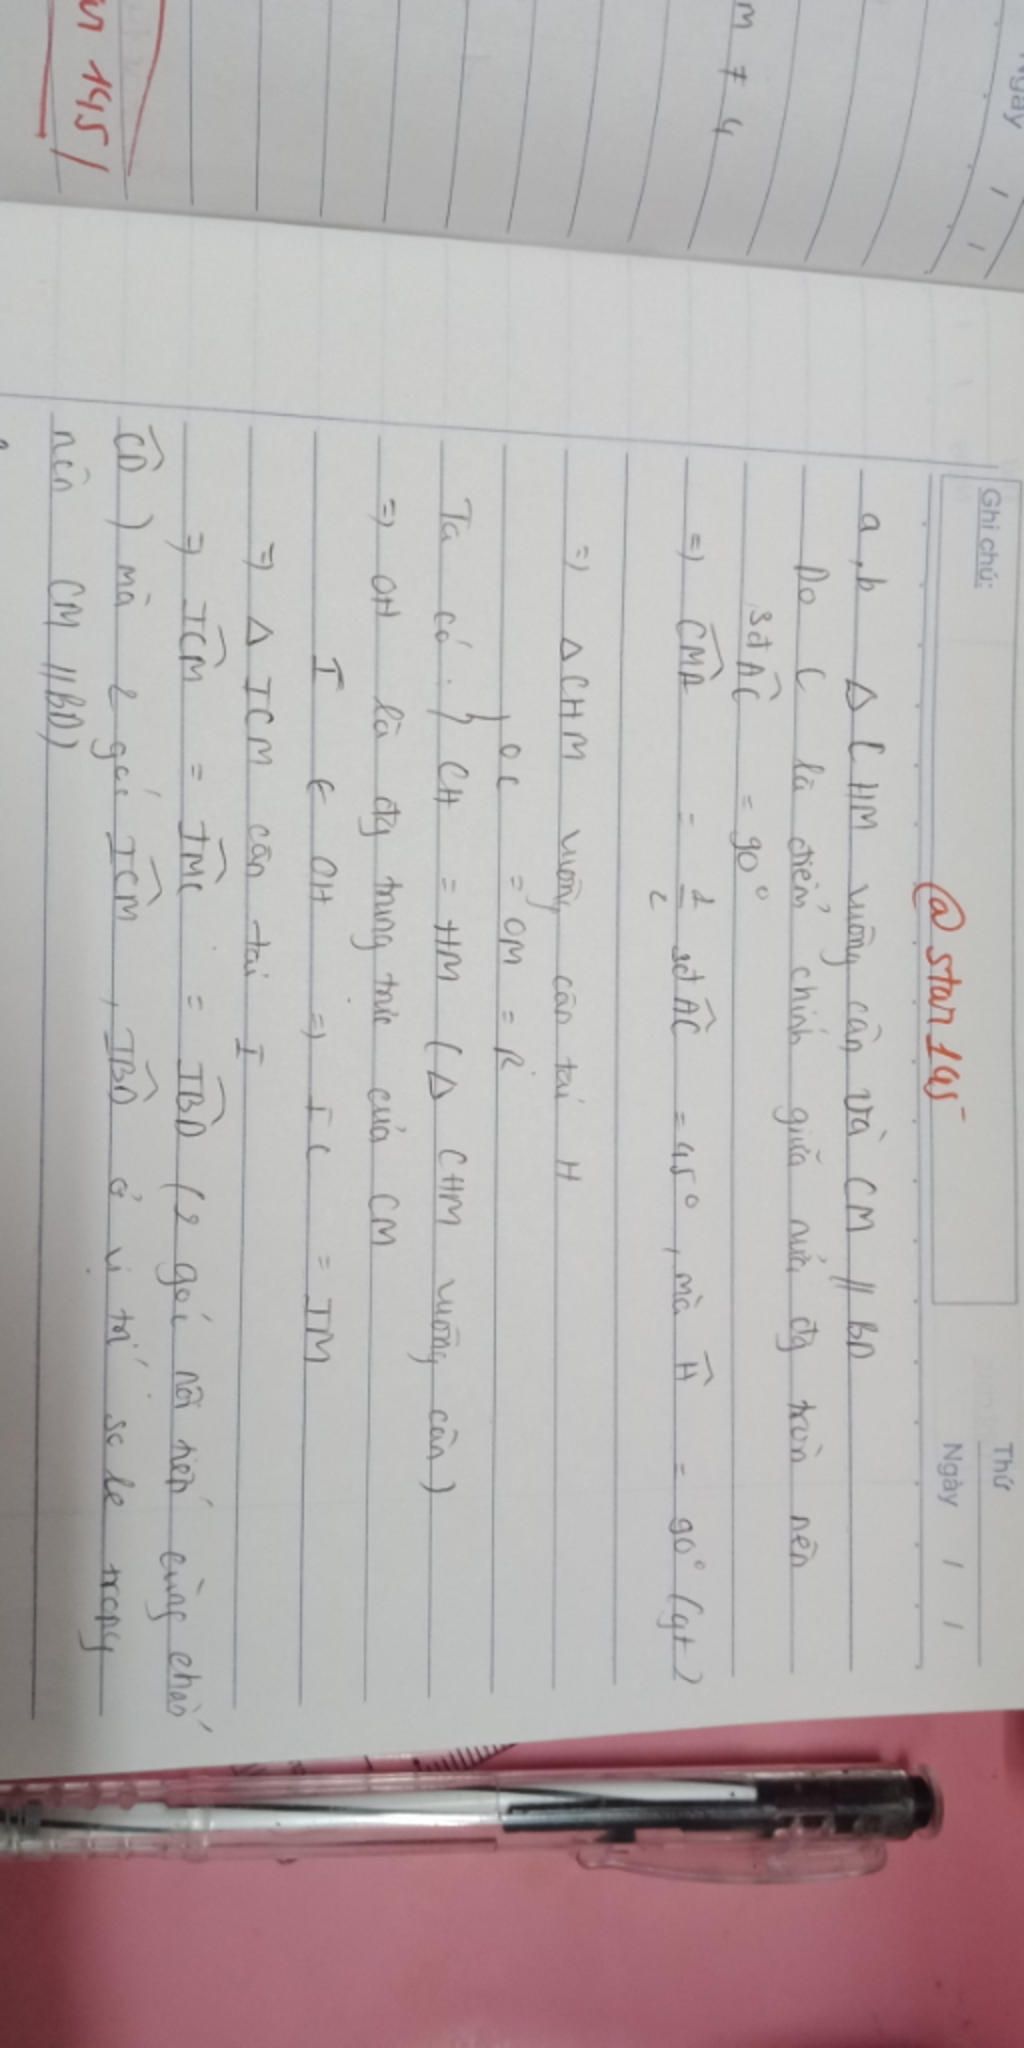 Ngày / /
m ≠ 4
145 /
Ghi chú:
Thứ
Ngày / /
@ Star145
a,b Δ CHM vuông cân và CM // BD
Do C là điểm chính giữa nửa đg tròn nên
sđ AC = 90°
=> CMA = 1/2 sđ AC = 45°, mà H = 90° (gt)
=> Δ CHM vuông cân tại H
OC = OM = R
Ta có: } CH = HM (Δ CHM vuông cân)
=> OH là đg trung trực của CM
I ∈ OH => IC = IM
=> Δ ICM cân tại I
=> ICM = IMC = IBD (2 góc nội tiếp cùng chắn
CD) mà 2 góc ICM, IBD ở vị trí so le trong
nên CM // BD)